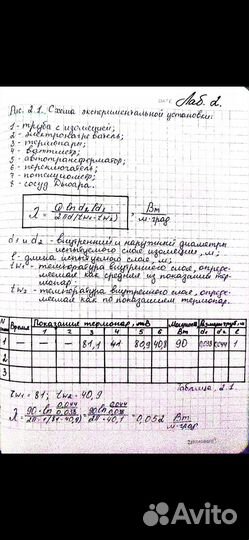 Лаб. 2.
Рис. 2.1. Схема экспериментальной установки:
1 - труба с изоляцией;
2 - электронагреватель;
3 - термопары;
4 - ваттметр;
5 - автотрансформатор;
6 - переключатель;
7 - потенциометр;
8 - сосуд Дьюара.
λ = Q ln d2/d1 / 2πl(tw1-tw2), Вт / м·град
d1 и d2 - внутренний и наружный диаметры
испытуемого слоя изоляции, м;
l - длина испытуемого слоя, м;
tw1 - температура внутреннего слоя, опреде-
ляемая как средняя из показаний тер-
мопар;
tw2 - температура внутреннего слоя, опре-
деляемая как по показаниям термопар.
N Время Показание термопар, mV Мощность Вт Размеры трубы, м
1 2 3 4 5 6 d1 d2 l
1 — — — 81,1 41 80,9 40,8 90 0,038 0,044 1
2
3
Таблица 2.1.
tw1 = 81; tw2 = 40,9
λ = 90·ln 0,044/0,038 / 2π·1(81-40,9) = 90 ln 0,044/0,038 / 2π·40,1 = 0,052 Вт / м·град
Avito